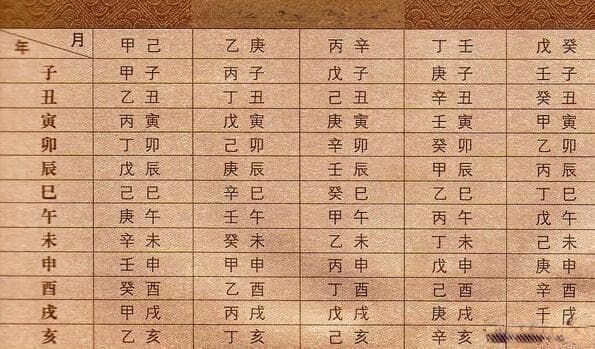 年 月 甲 己 乙 庚 丙 辛 丁 壬 戊 癸
子 甲 子 丙 子 戊 子 庚 子 壬 子
丑 乙 丑 丁 丑 己 丑 辛 丑 癸 丑
寅 丙 寅 戊 寅 庚 寅 壬 寅 甲 寅
卯 丁 卯 己 卯 辛 卯 癸 卯 乙 卯
辰 戊 辰 庚 辰 壬 辰 甲 辰 丙 辰
巳 己 巳 辛 巳 癸 巳 乙 巳 丁 巳
午 庚 午 壬 午 甲 午 丙 午 戊 午
未 辛 未 癸 未 乙 未 丁 未 己 未
申 壬 申 甲 申 丙 申 戊 申 庚 申
酉 癸 酉 乙 酉 丁 酉 己 酉 辛 酉
戌 甲 戌 丙 戌 戊 戌 庚 戌 壬 戌
亥 乙 亥 丁 亥 己 亥 辛 亥